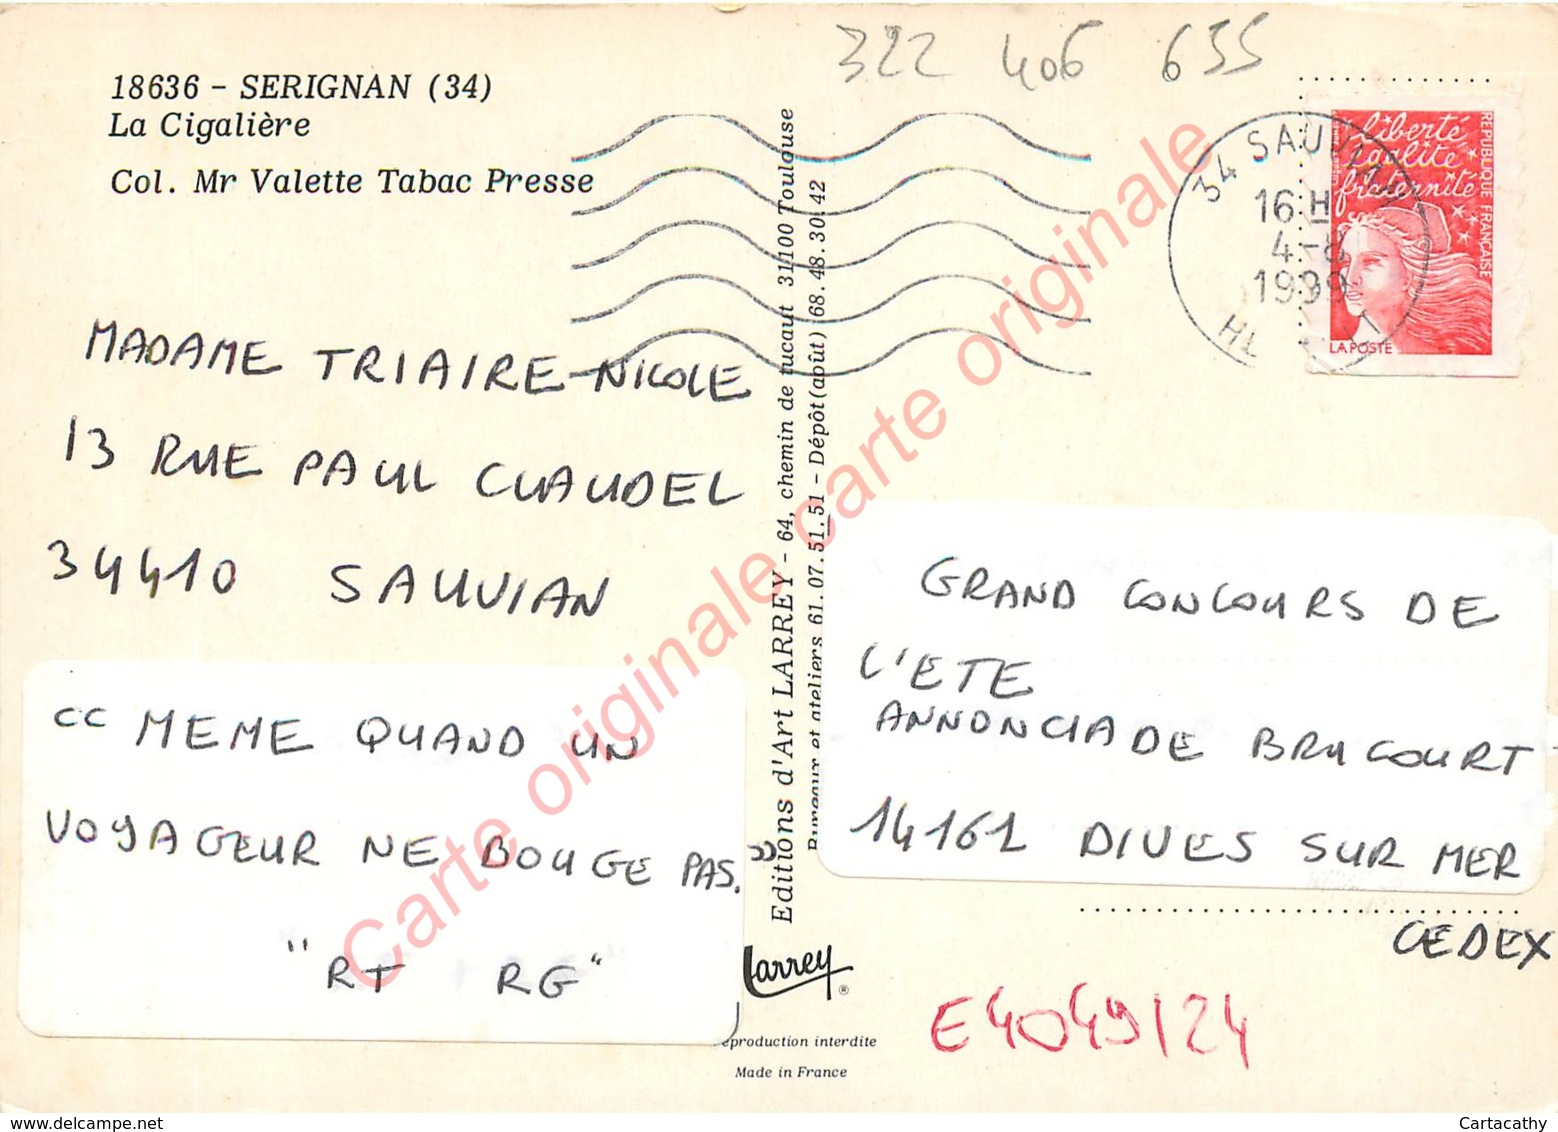 322 406 635
18636 - SERIGNAN (34)
La Cigalière
Col. Mr Valette Tabac Presse
34 SAUVIAN
16 H
4-8
1999
HL
liberté
égalité
fraternité
REPUBLIQUE FRANÇAISE
LA POSTE
MADAME TRIAIRE-NICOLE
13 RUE PAUL CLAUDEL
34410 SAUVIAN
Editions d'Art LARREY - 64, chemin de tucaut 31100 Toulouse
Bureaux et ateliers 61.07.51.51 - Dépôt (août) 68.48.30.42
<< MEME QUAND UN
VOYAGEUR NE BOUGE PAS. >>
"RT RG"
GRAND CONCOURS DE
L'ETE
ANNONCIADE BRUCOURT
14161 DIVES SUR MER
CEDEX
Larrey ®
E4049124
Reproduction interdite
Made in France
Carte originale carte originale
Cartacathy